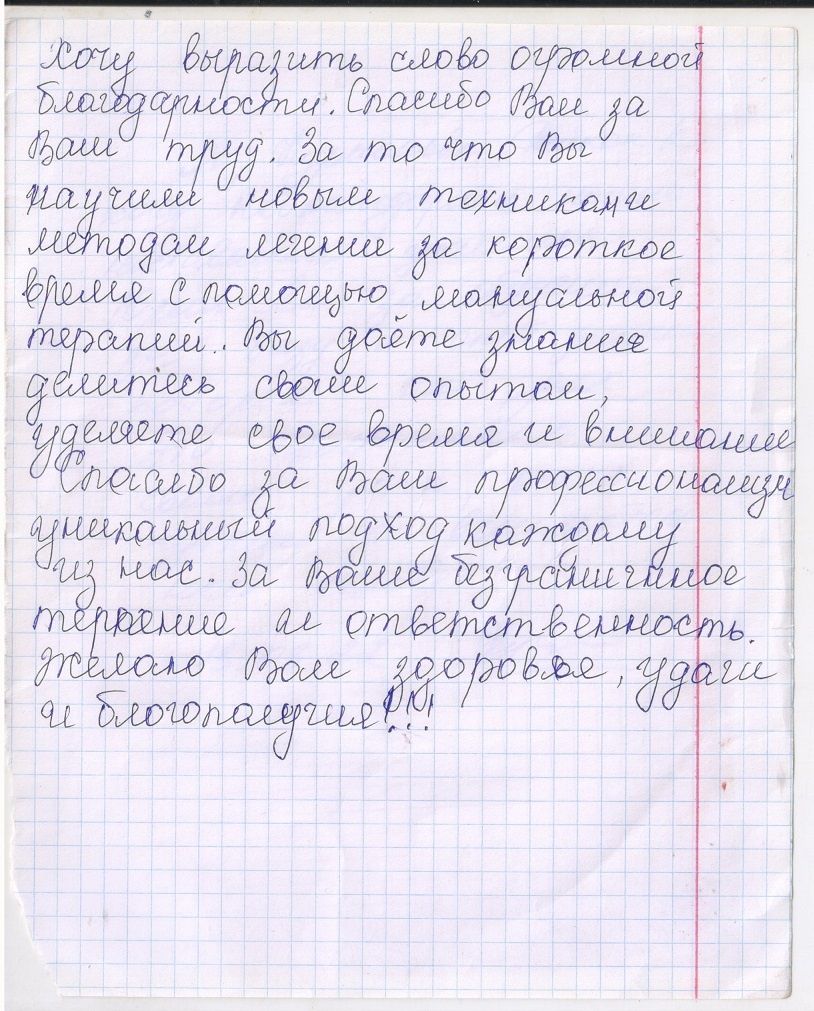 Хочу выразить слово огромной
благодарности. Спасибо Вам за
Ваш труд. За то что Вы
научили новым техникам и
методам лечение за короткое
время с помощью мануальной
терапий. Вы даёте знание
делитесь своим опытом,
уделяете свое время и внимание
Спасибо за Ваш профессионализм
уникальный подход каждому
из нас. За Ваше безграничное
терпение и ответственность.
Желаю Вам здоровья, удачи
и благополучия!!!